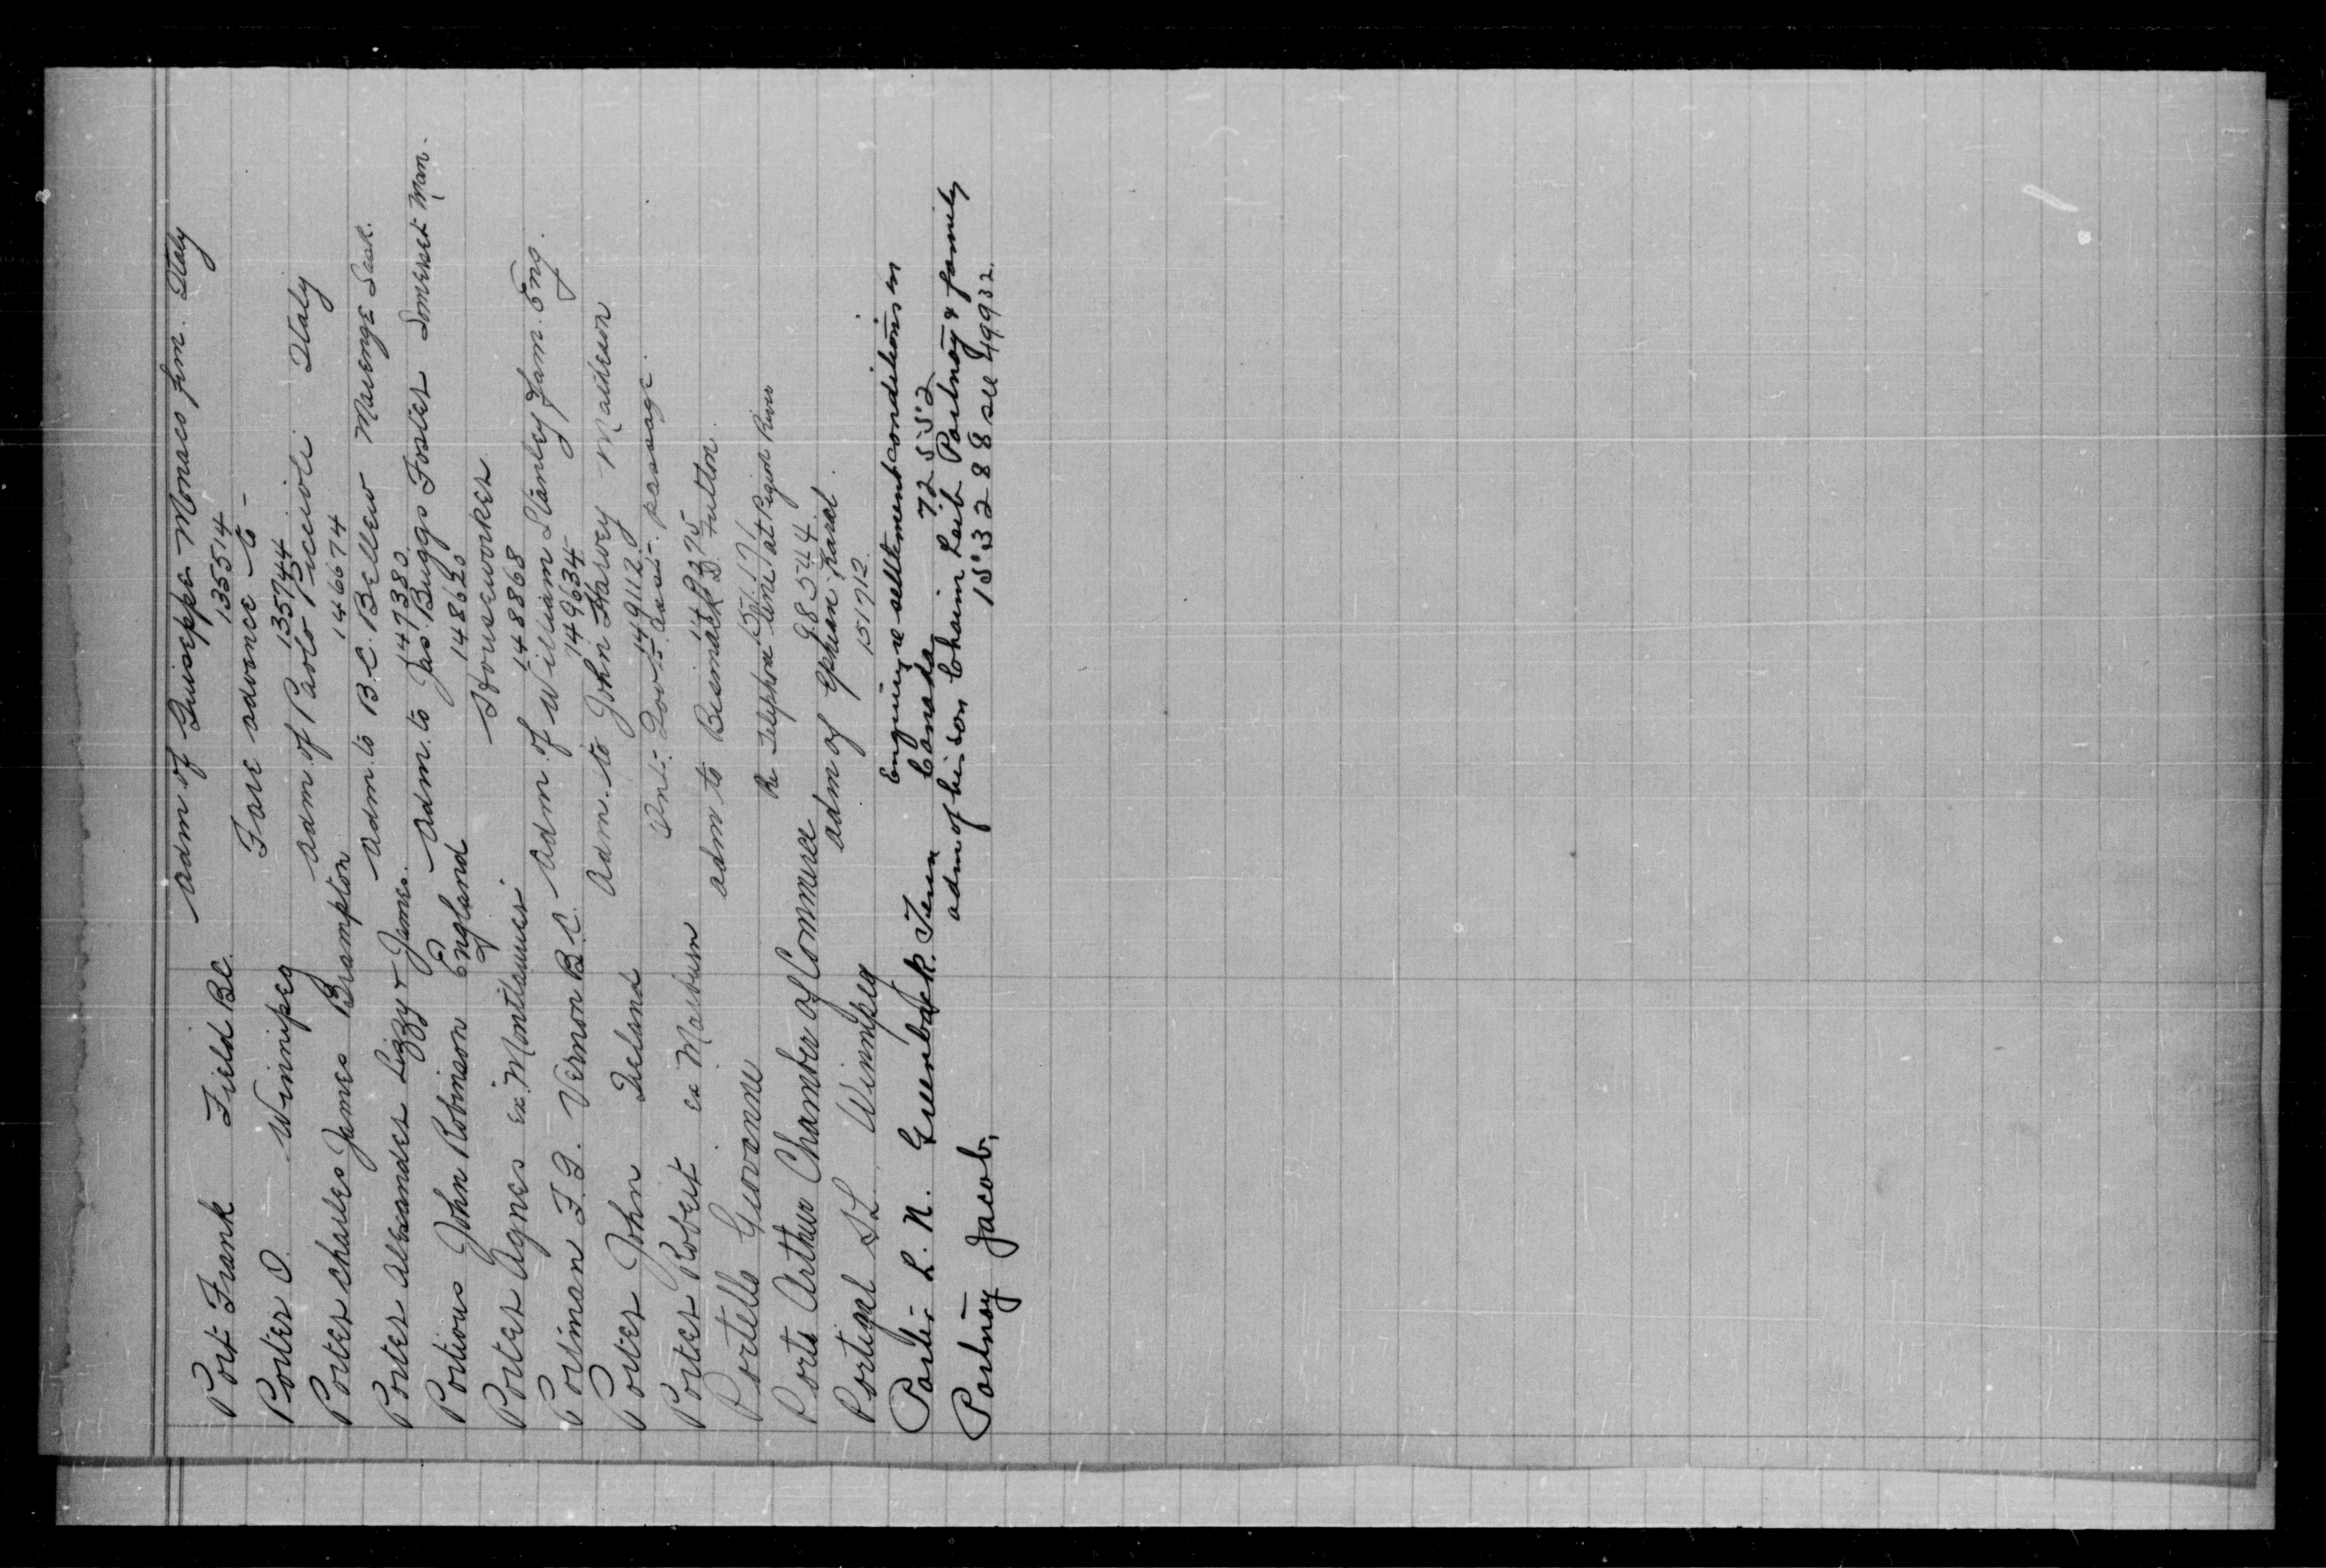 Port Frank Field B.C. Adm of Guiseppe Monaco fim. Italy
135514
Porter O. Winnipeg Fare advance to -
135744
Porter Charles James Brampton Adm. of Paolo Italy
146674
Porter Alexander Lizzy & James. Adm. to B.C. Bellew Marengo Sask.
147380
Portious John Robinson England Adm. to Jas. Buggs Foster Somerset Man.
148620
Porter Agnes ex. Montlaurier Houseworker
148868
Portman F.G. Vernon B.C. Adm. of William Stanley fam. Eng.
149634
Porter John Ireland Adm. to John Harvey Matheson
149112
passage.
Porter Robert ex Marburn adm to Bismack D. Fulton.
Portello Giovanni
Re Telephone line at Pigeon River
Port Arthur Chamber of Commerce 98544
Portigal SL Winnipeg adm of Ephrain Karel.
151712
Porter L. N. Greenback. Tenn Enquiry re settlement conditions in
Canada 72552
Portnoy Jacob. adm of his son Chaim Leib Portnoy & family
153288 see 49932.